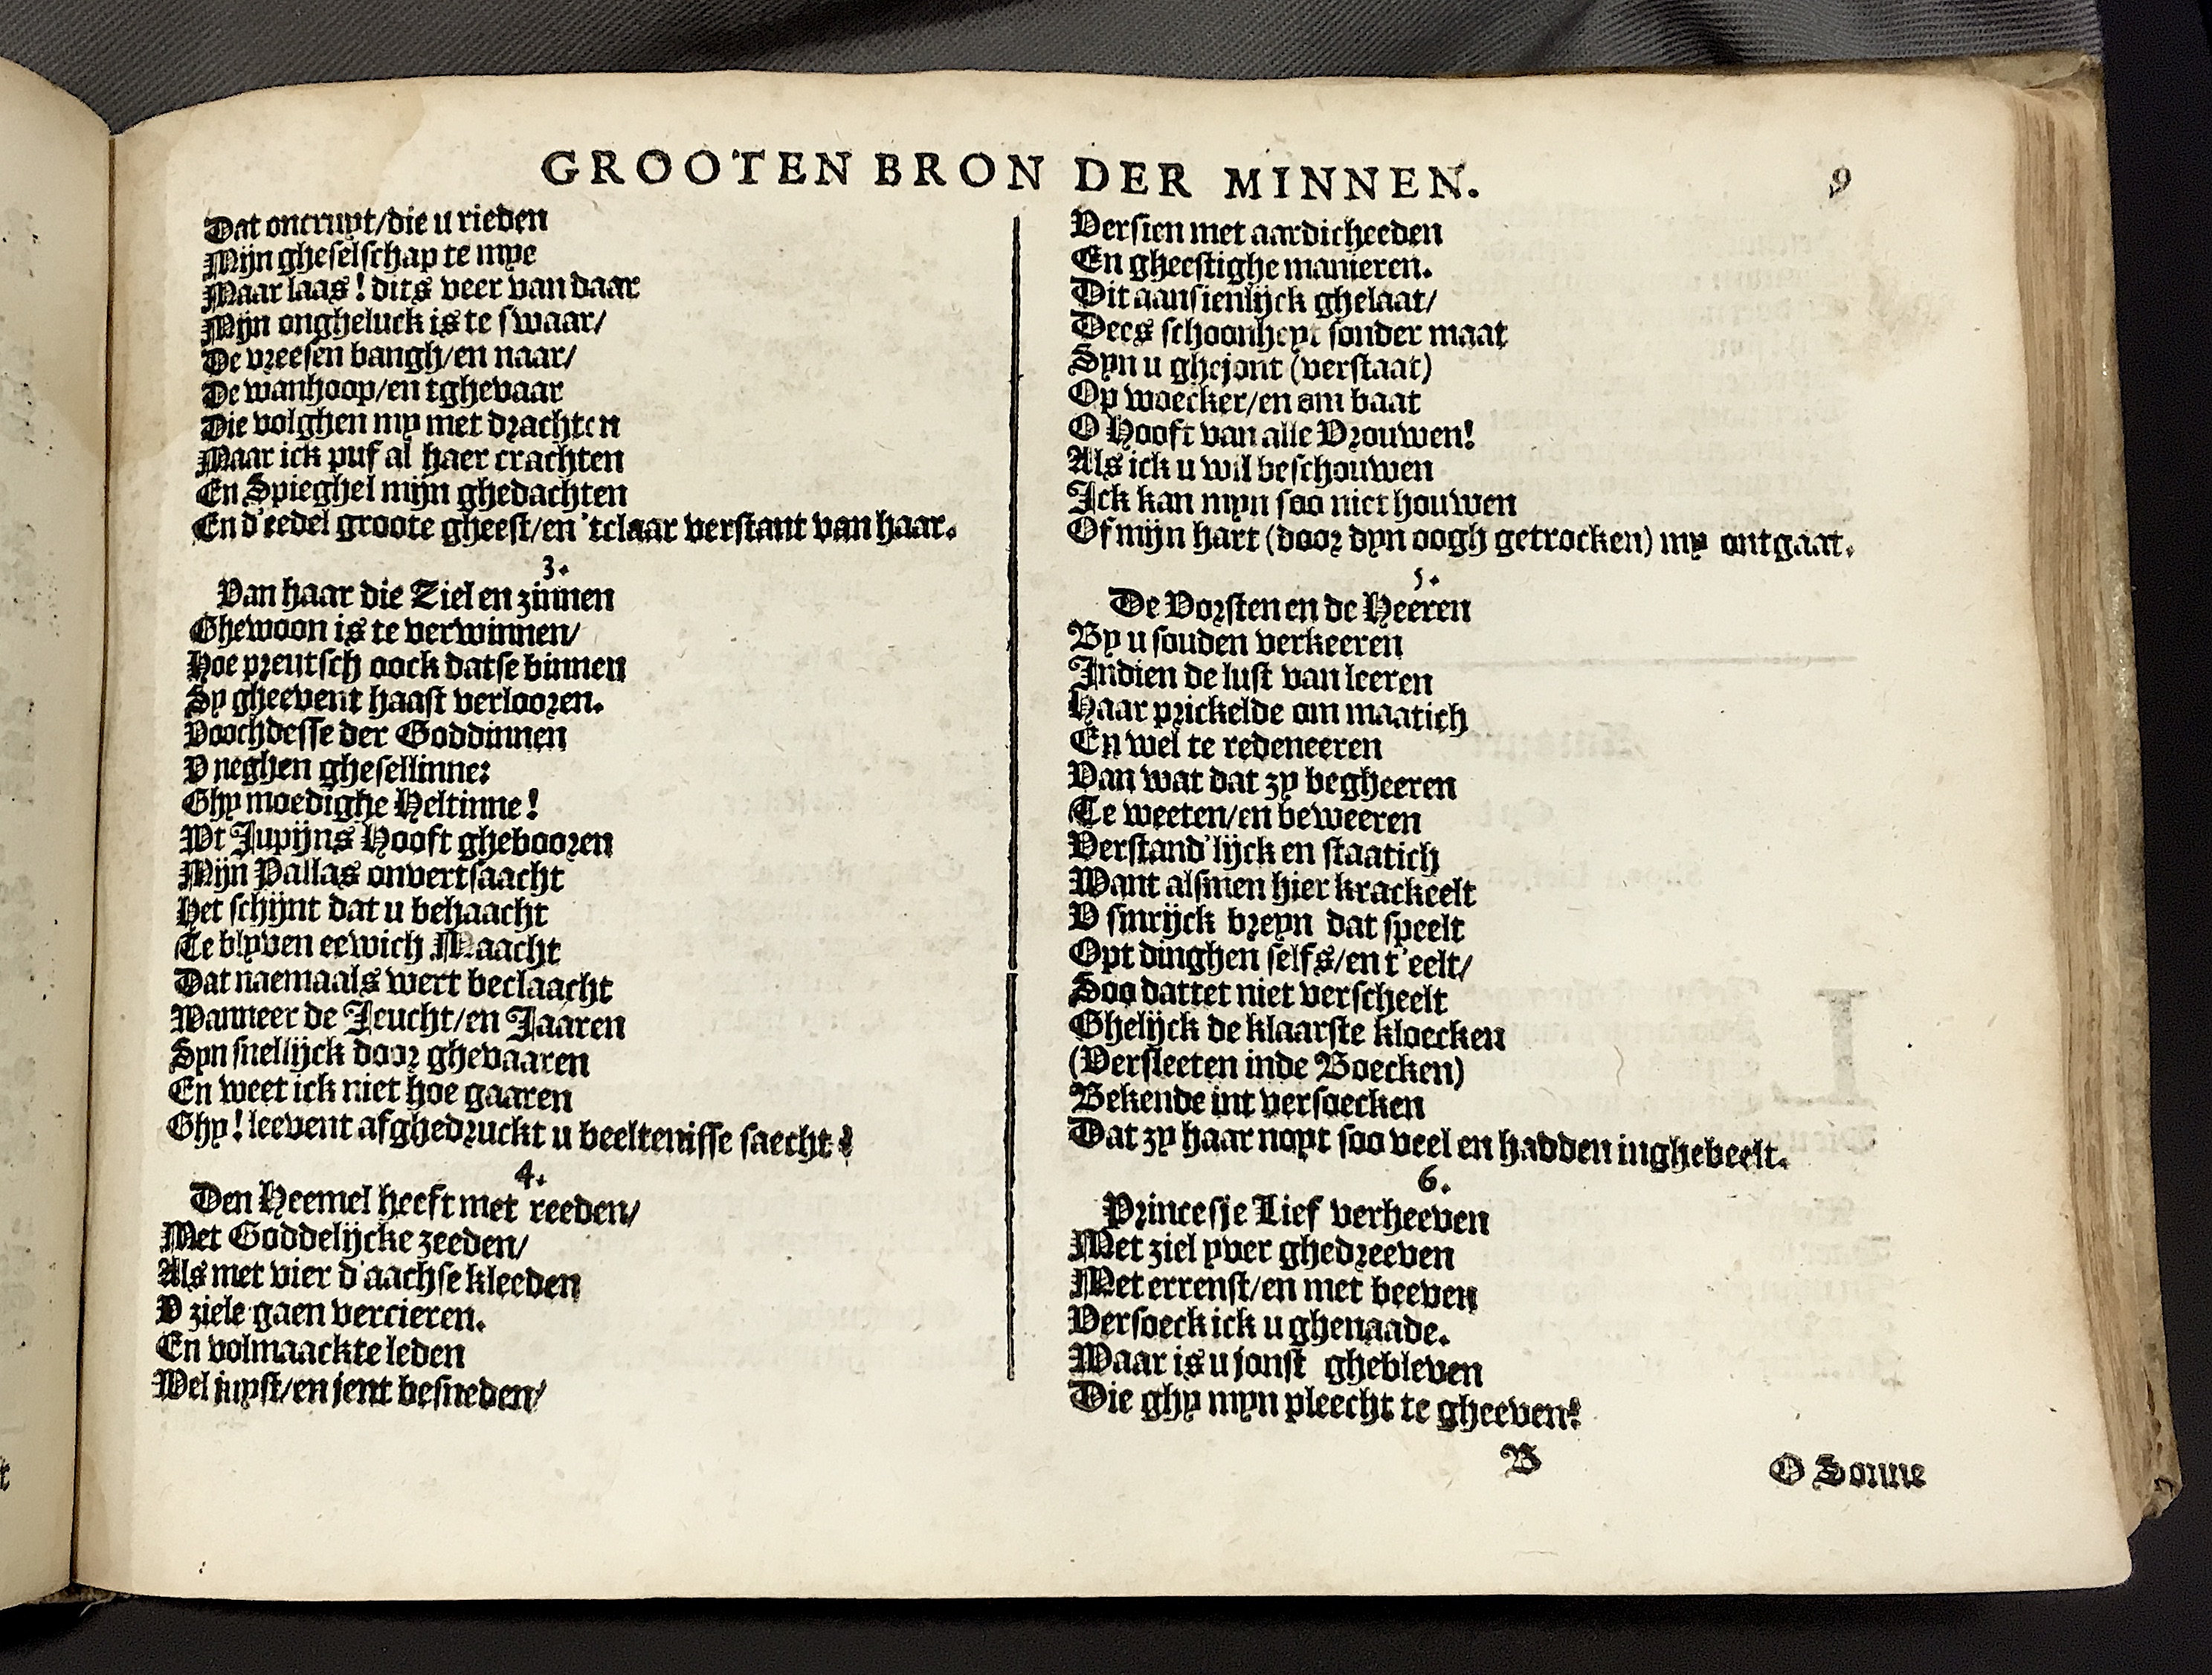 GROOTEN BRON DER MINNEN. 9
Dat ontruyt/die u rieden
Mijn gheselschap te mye
Maar laas! dits veer van daar
Mijn ongheluck is te swaar/
De vreesen bangh/en naar/
De wanhoop/en tghevaar
Die volghen my met drachten
Maar ick puf al haer crachten
En Spieghel mijn ghedachten
En d'eedel groote gheest/en 'tclaar verstant van haar.
3.
Van haar die Ziel en zinnen
Ghewoon is te verwinnen/
Hoe preutsch oock datse binnen
Sy gheevent haast verlooren.
Voochdesse der Goddinnen
V neghen ghesellinne:
Ghy moedighe Heltinne!
Wt Jupijns Hooft ghebooren
Mijn Pallas onvertsaacht
Het schijnt dat u behaacht
Te blyven eewich Maacht
Dat naemaals wert beclaacht
Wanneer de Jeucht/en Jaaren
Syn snellijck door ghevaaren
En weet ick niet hoe gaaren
Ghy! leevent afghedruckt u beeltenisse saecht!
4.
Den Heemel heeft met reeden/
Met Goddelijcke zeeden/
Als met vier d'aachse kleeden
V ziele gaen vercieren.
En volmaackte leden
Wel juyst/en jent besneden/
Versien met aardicheeden
En gheestighe manieren.
Dit aansienlijck ghelaat/
Dees schoonheyt sonder maat
Syn u ghejont (verstaat)
Op woecker/en om baat
O Hooft van alle Vrouwen!
Als ick u wil beschouwen
Ick kan myn soo niet houwen
Of mijn hart (door dyn oogh getrocken) my ontgaat.
5.
De Vorsten en de Heeren
By u souden verkeeren
Indien de lust van leeren
Haar prickelde om maatich
En wel te redeneeren
Van wat dat zy begheeren
Te weeten/en beweeren
Verstand'lijck en staatich
Want alsmen hier krackeelt
V sinrijck breyn dat speelt
Opt dinghen selfs/en t'eelt/
Soo dattet niet verscheelt
Ghelijck de klaarste kloecken
(Versleeten inde Boecken)
Bekende int versoecken
Dat zy haar noyt soo veel en hadden inghebeelt.
6.
Princesje Lief verheeven
Met ziel yver ghedreeven
Met errenst/en met beeven
Versoeck ick u ghenaade.
Waar is u jonst ghebleven
Die ghy myn pleecht te gheeven?
B O Sonne